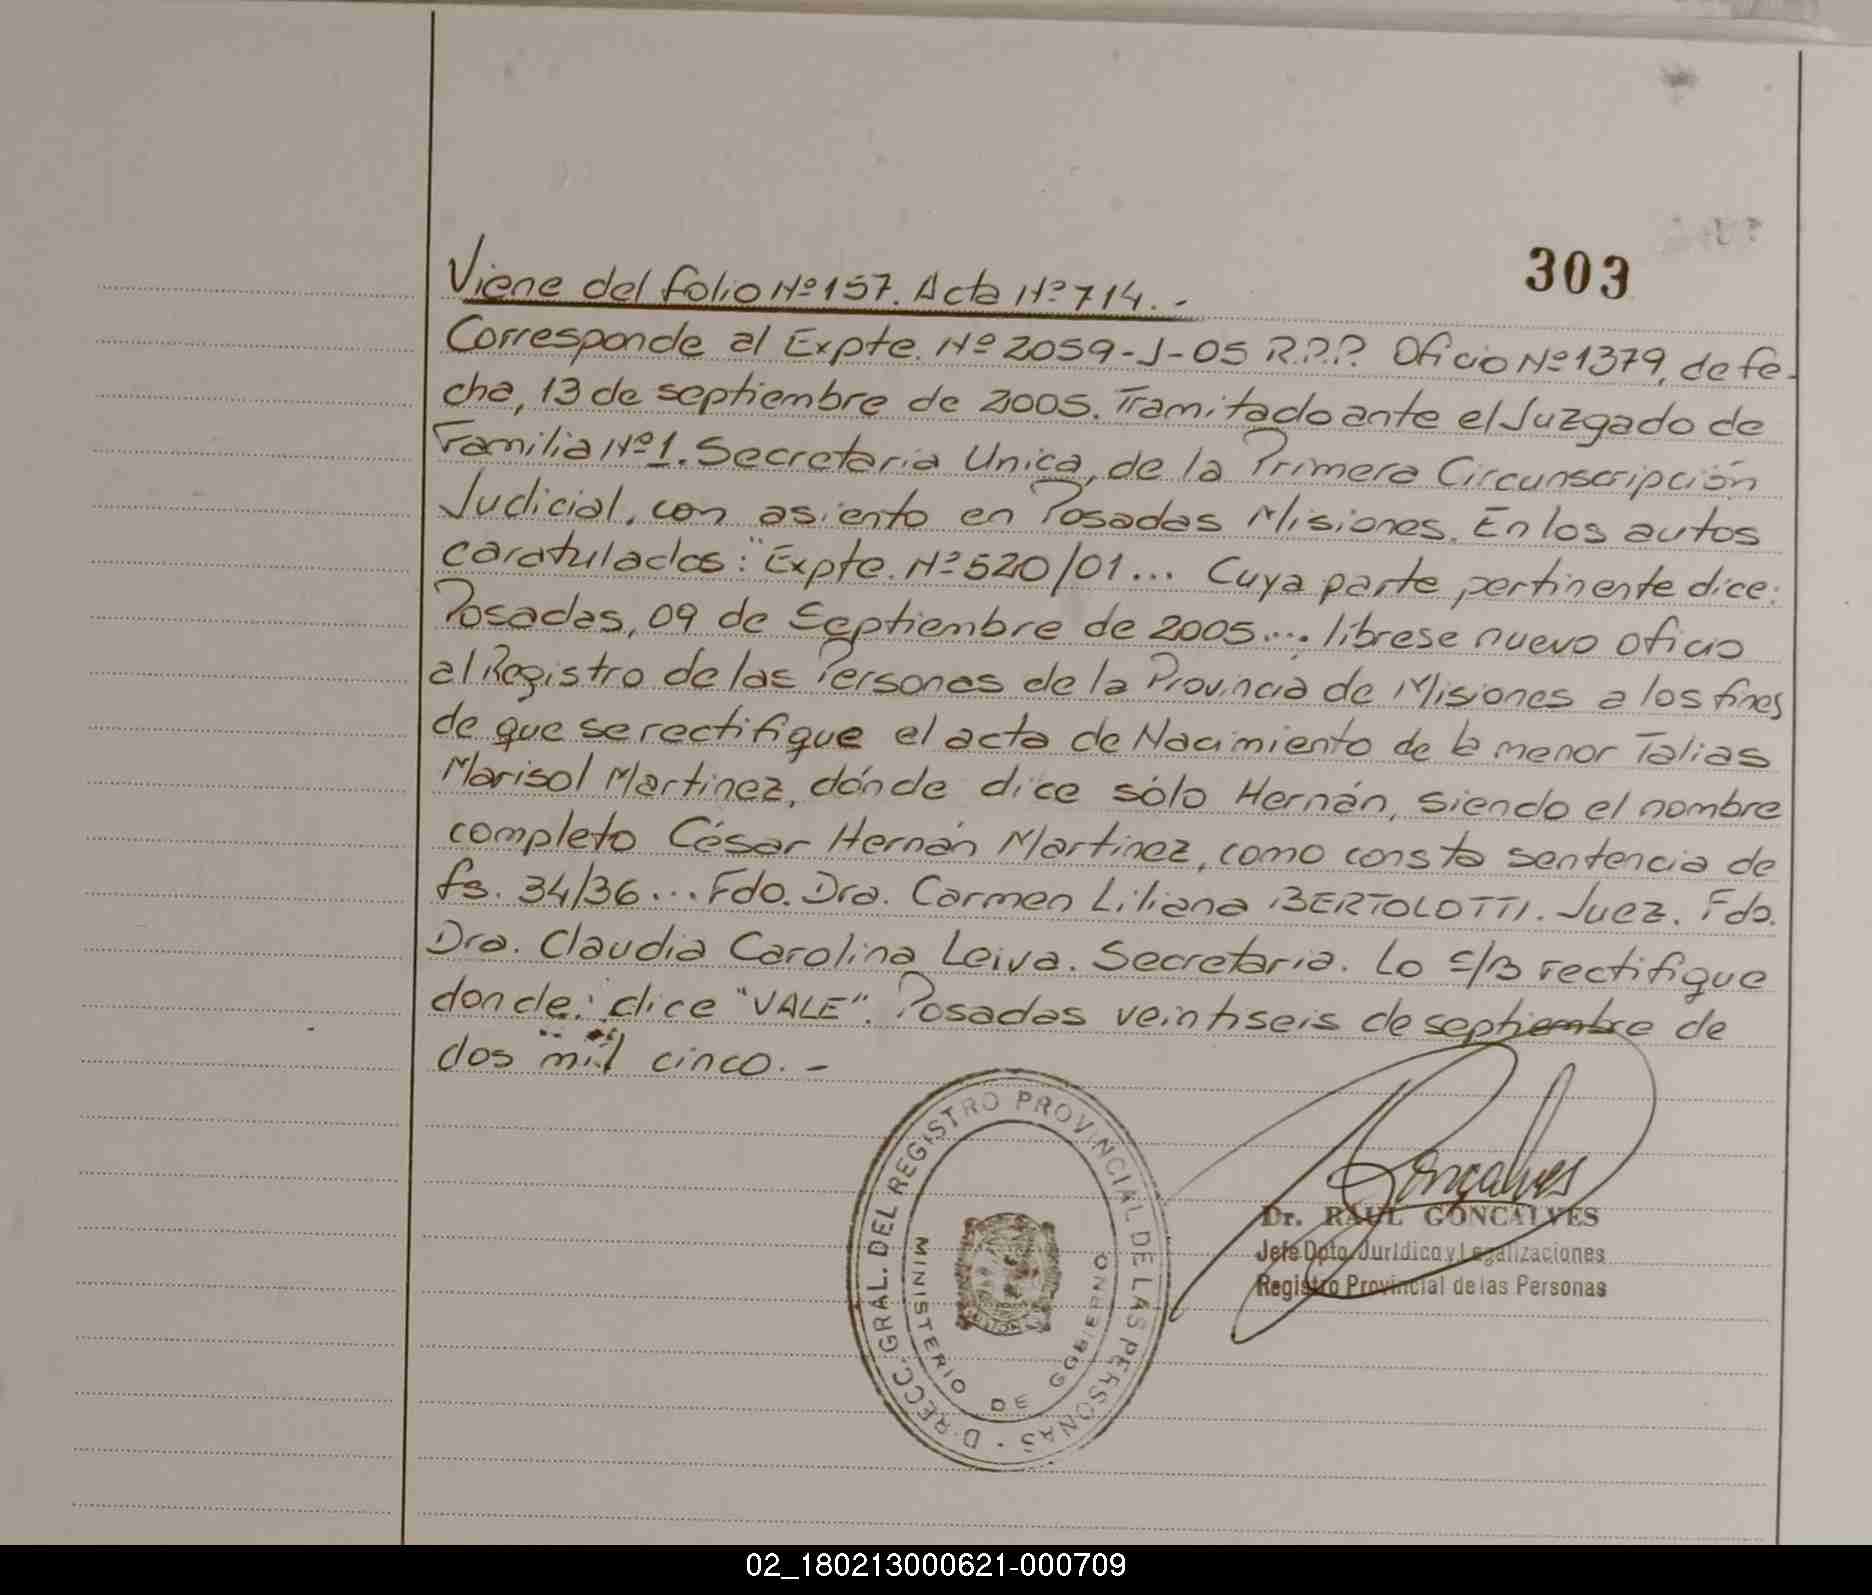 303
Viene del folio Nº 157. Acta Nº 714.-
Corresponde al Expte. Nº 2059-J-05 R.P.P. Oficio Nº 1379, de fe-
cha, 13 de septiembre de 2005. Tramitado ante el Juzgado de
Familia Nº 1. Secretaria Unica, de la Primera Circunscripción
Judicial, con asiento en Posadas Misiones. En los autos
caratulados: "Expte. Nº 520/01... Cuya parte pertinente dice:
Posadas, 09 de Septiembre de 2005.... líbrese nuevo oficio
al Registro de las Personas de la Provincia de Misiones a los fines
de que se rectifique el acta de Nacimiento de la menor Talias
Marisol Martinez, dónde dice sólo Hernán, siendo el nombre
completo César Hernán Martinez, como consta sentencia de
fs. 34/36... Fdo. Dra. Carmen Liliana BERTOLOTTI. Juez. Fdo.
Dra. Claudia Carolina Leiva. Secretaria. Lo s/B rectifique
donde: dice "VALE". Posadas veintiseis de septiembre de
dos mil cinco.-
DIRECC. GRAL. DEL REGISTRO PROVINCIAL DE LAS PERSONAS
MINISTERIO DE GOBIERNO
Goncalves
Dr. RAUL GONCALVES
Jefe Dpto. Jurídico y Legalizaciones
Registro Provincial de las Personas
02_180213000621-000709